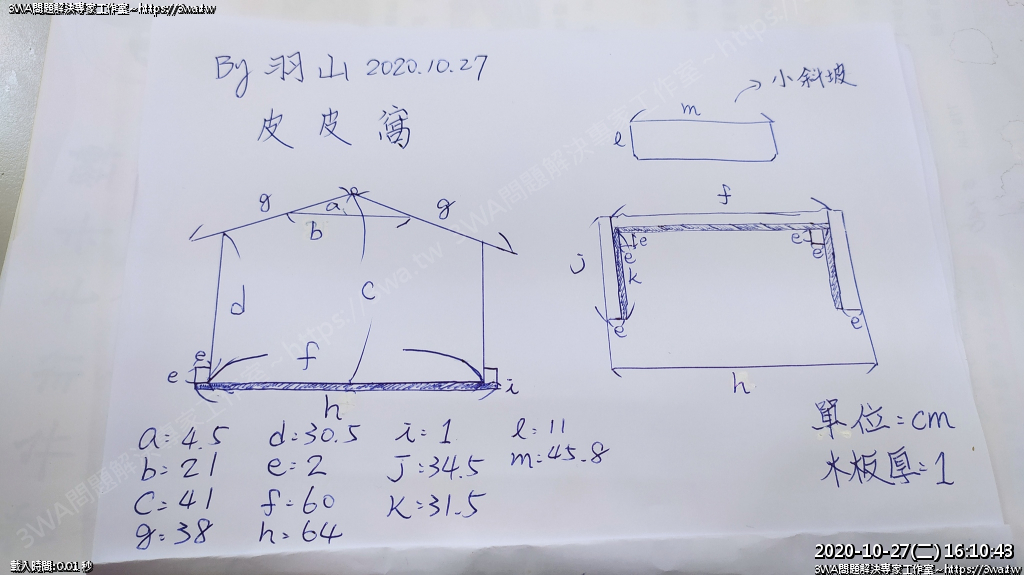 3WA問題解決專家工作室~https://3wa.tw
By 羽山 2020.10.27
皮皮窩
小斜坡
m
l
g
a
g
b
f
d
c
j
e
e
e
e
k
e
e
f
e
e
i
h
h
a=4.5 d=30.5 i=1 l=11
b=21 e=2 j=34.5 m=45.8
c=41 f=60 k=31.5
g=38 h=64
單位=cm
木板厚=1
載入時間:0.01 秒
2020-10-27(二) 16:10:43
3WA問題解決專家工作室~https://3wa.tw